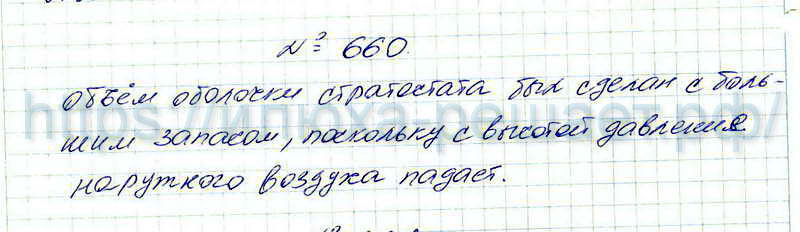 № 660.
Объём оболочки стратостата был сделан с боль-
шим запасом, поскольку с высотой давление
наружного воздуха падает.